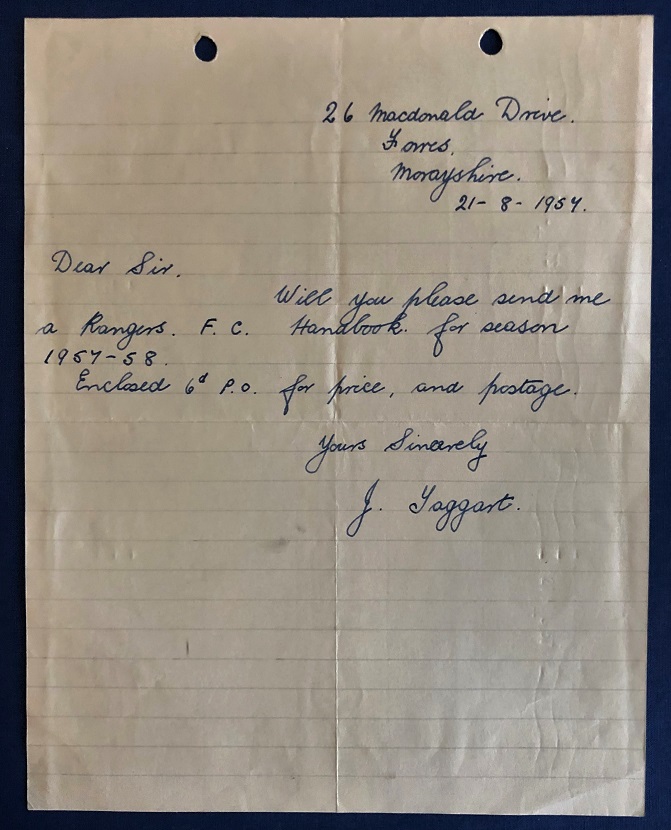 26 Macdonald Drive.
Forres.
Morayshire.
21- 8- 1957.
Dear Sir.
Will you please send me
a Rangers. F. C. Handbook. for season
1957-58.
Enclosed 6d P.O. for price, and postage.
Yours Sincerely
J. Taggart.